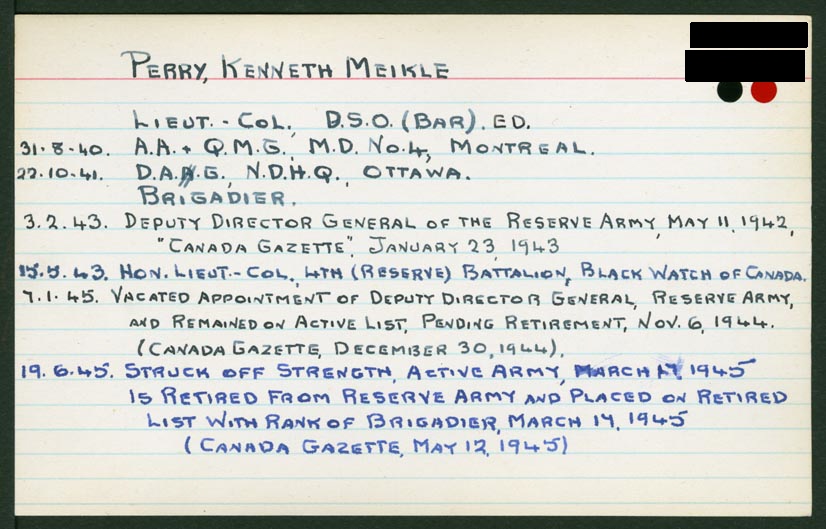 PERRY, KENNETH MEIKLE
LIEUT. - COL., D.S.O. (BAR). ED.
31-8-40. A.A. + Q.M.G., M.D. No.4, MONTREAL.
22-10-41. D.A.A.G., N.D.H.Q., OTTAWA.
BRIGADIER.
3.2.43. DEPUTY DIRECTOR GENERAL OF THE RESERVE ARMY, MAY 11, 1942,
"CANADA GAZETTE", JANUARY 23, 1943
15.5.43. HON. LIEUT.-COL., 4TH (RESERVE) BATTALION, BLACK WATCH OF CANADA.
7.1.45. VACATED APPOINTMENT OF DEPUTY DIRECTOR GENERAL, RESERVE ARMY,
AND REMAINED ON ACTIVE LIST, PENDING RETIREMENT, NOV. 6, 1944.
(CANADA GAZETTE, DECEMBER 30, 1944).
19.6.45. STRUCK OFF STRENGTH, ACTIVE ARMY, MARCH 17, 1945
IS RETIRED FROM RESERVE ARMY AND PLACED ON RETIRED
LIST WITH RANK OF BRIGADIER, MARCH 17, 1945
(CANADA GAZETTE, MAY 12, 1945)